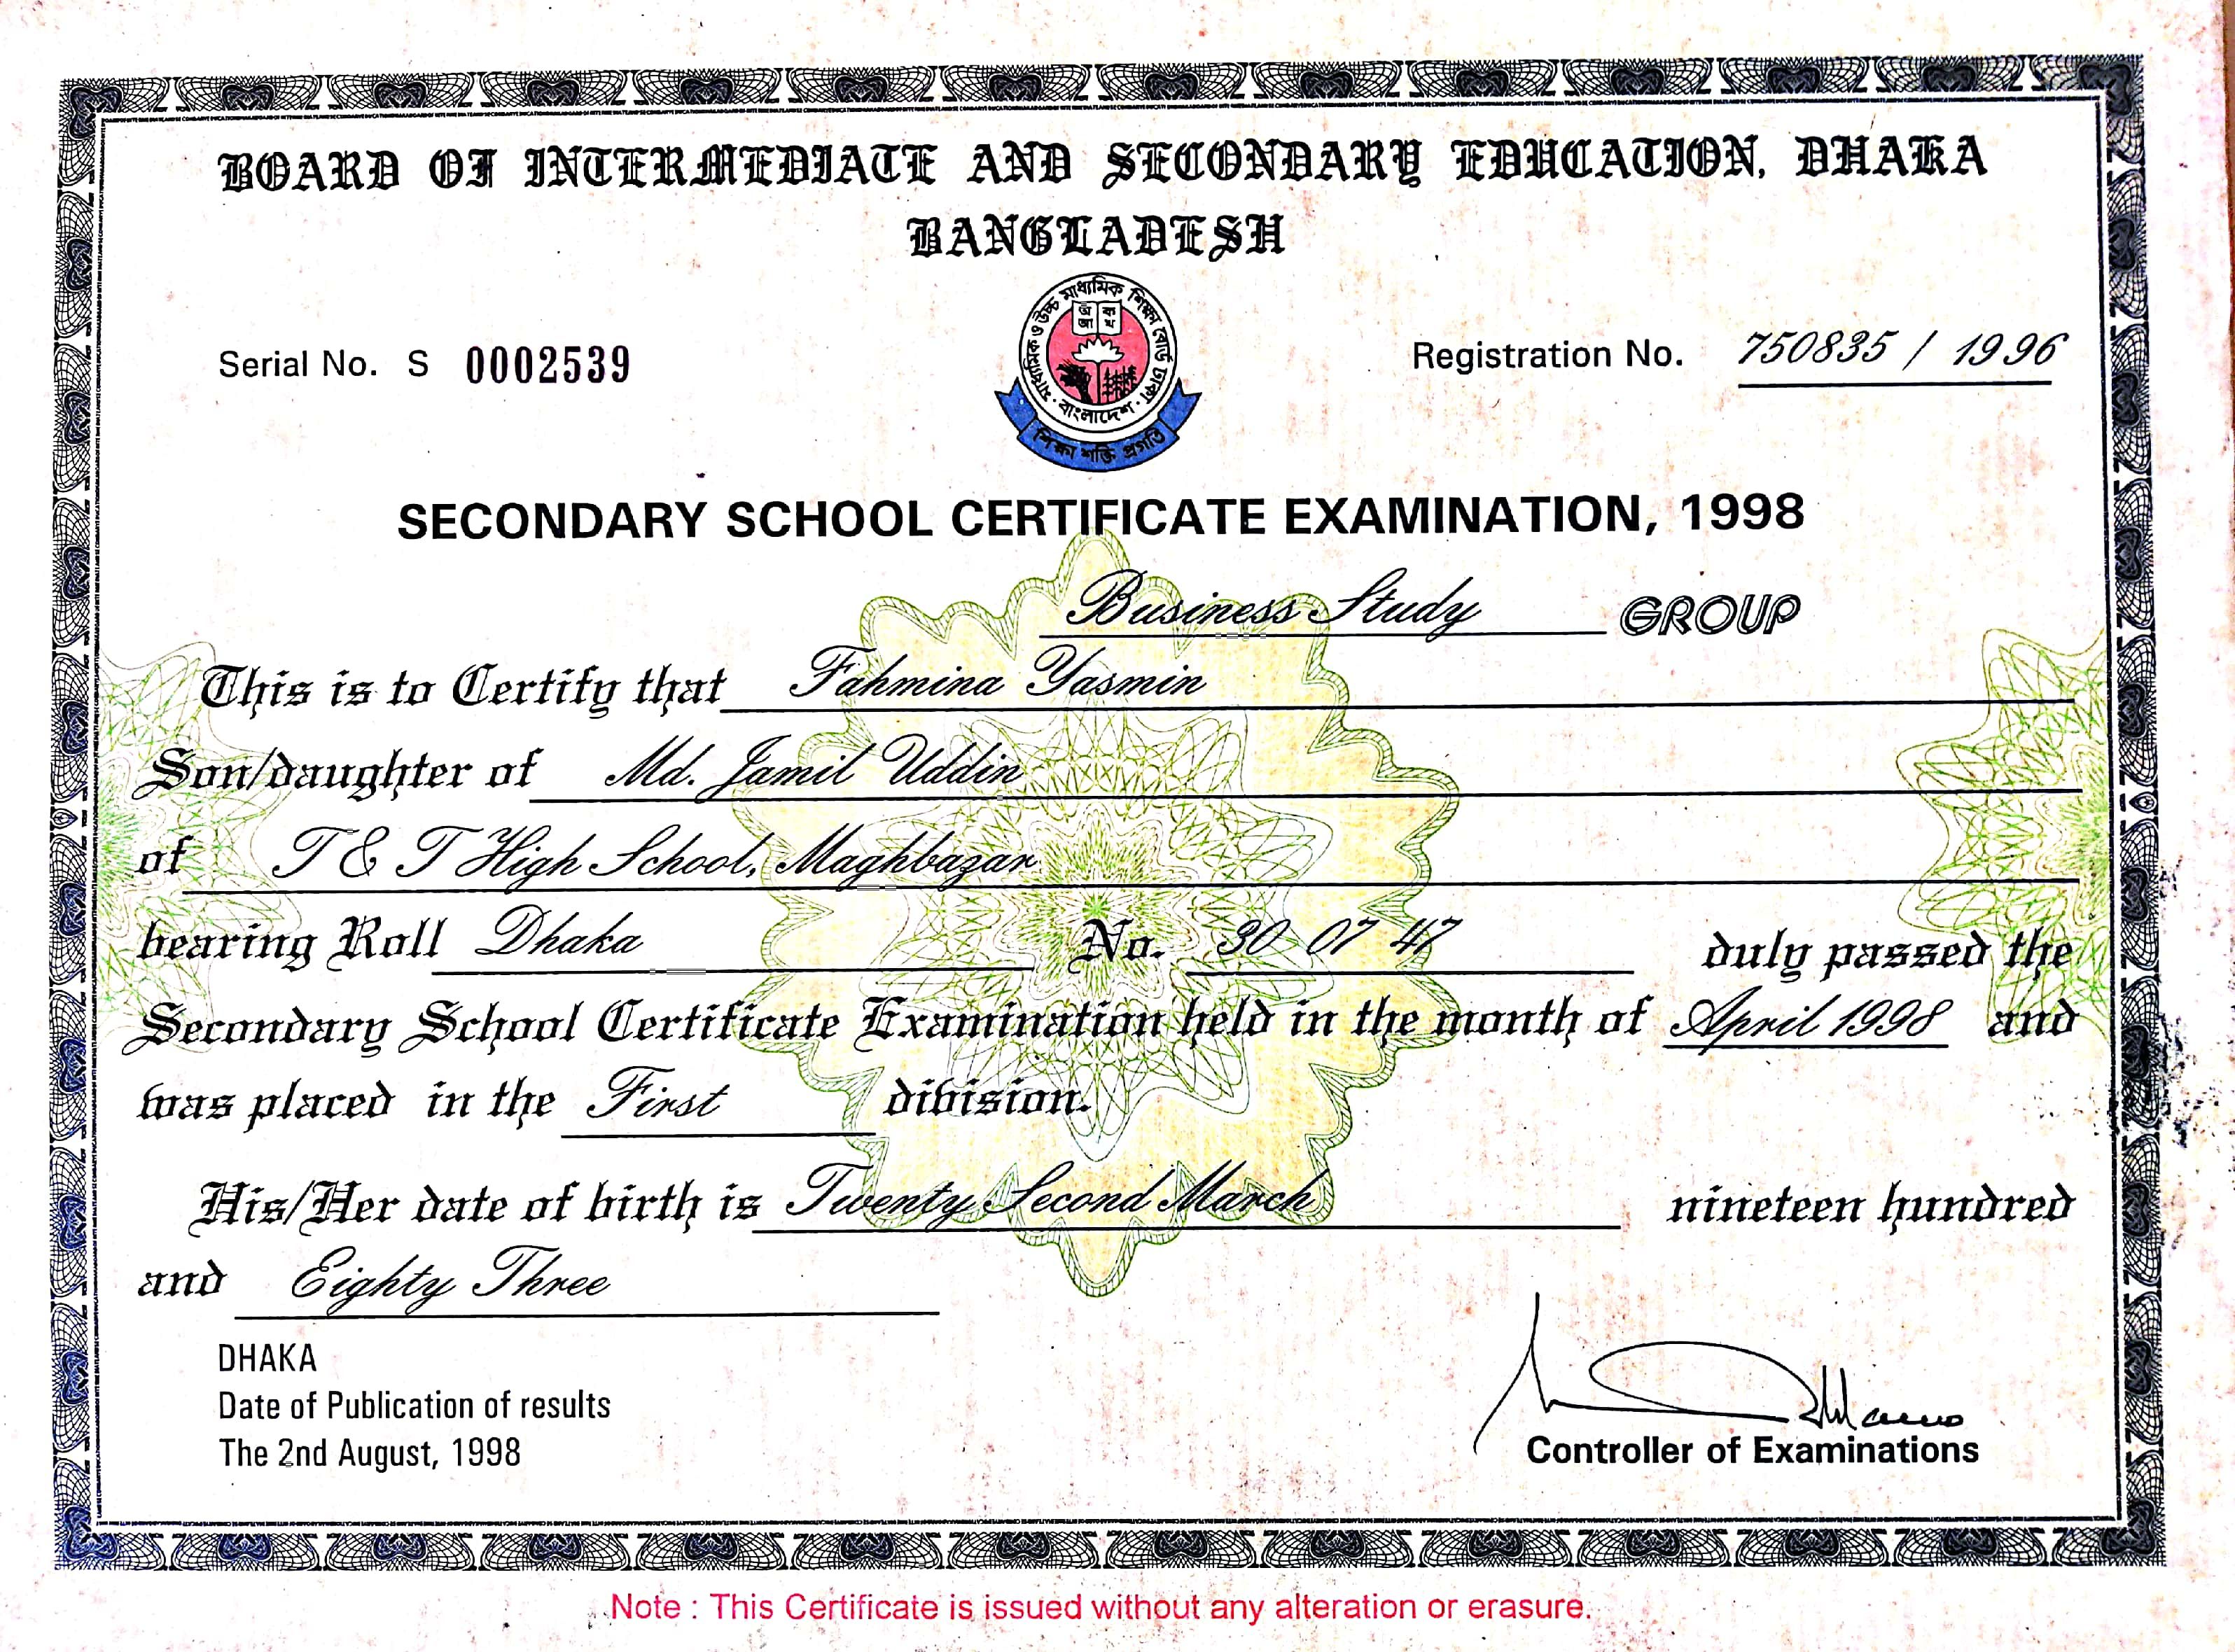 BOARD OF INTERMEDIATE AND SECONDARY EDUCATION, DHAKA
BANGLADESH
মাধ্যমিক ও উচ্চ মাধ্যমিক শিক্ষা বোর্ড ঢাকা
অ ক
আ খ
বাংলাদেশ
শিক্ষা শক্তি প্রগতি
Serial No. S 0002539
Registration No. 750835 / 1996
SECONDARY SCHOOL CERTIFICATE EXAMINATION, 1998
Business Study GROUP
This is to Certify that Fahmina Yasmin
Son/daughter of Md. Jamil Uddin
of T & T High School, Maghbazar
bearing Roll Dhaka No. 30 07 47 duly passed the
Secondary School Certificate Examination held in the month of April 1998 and
was placed in the First division.
His/Her date of birth is Twenty Second March nineteen hundred
and Eighty Three
DHAKA
Date of Publication of results
The 2nd August, 1998
Controller of Examinations
Note : This Certificate is issued without any alteration or erasure.